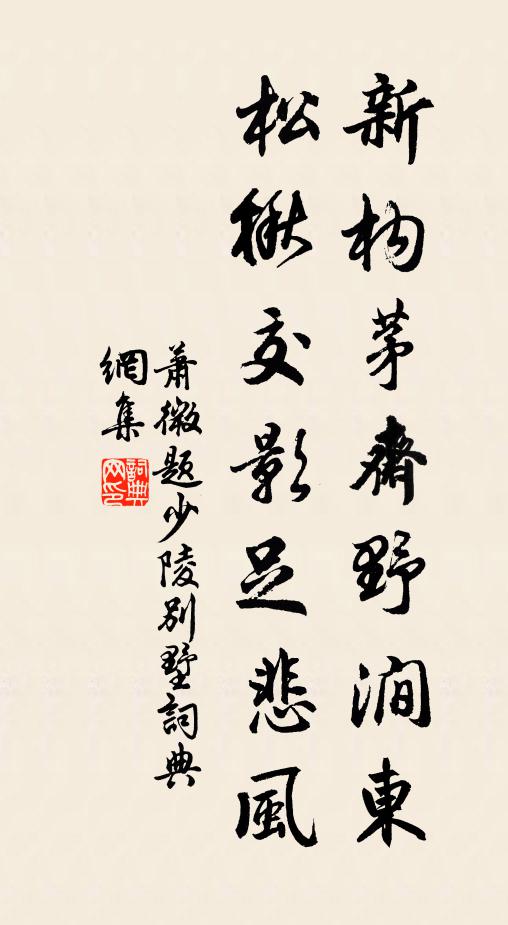 新构茅齋野澗東
松楸交影足悲風
蕭微題少陵別墅詞典
網集
詞典
网印